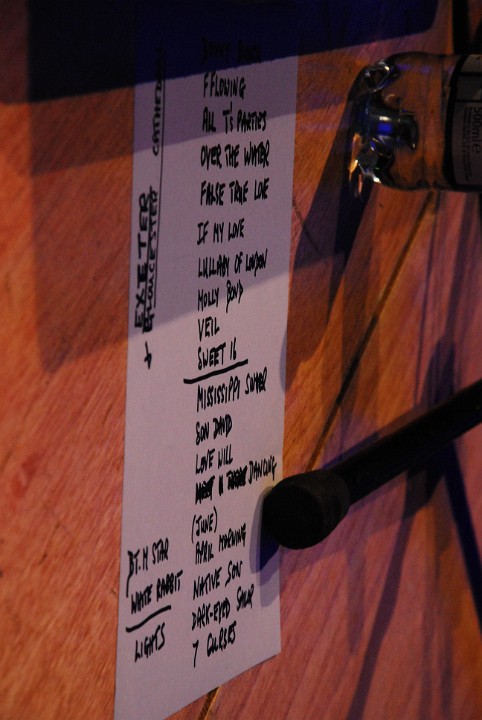 FFLOWING
ALL T'S PARTIES
OVER THE WATER
FALSE TRUE LOVE
IF MY LOVE
LULLABY OF LONDON
MOLLY BOND
VEIL
SWEET 16
MISSISSIPPI SUMMER
SON DAVID
LOVE WILL
DANCING
(JUNE)
APRIL MORNING
NATIVE SON
DARK-EYED SAILOR
7 CURSES
BT. M STAR
WHITE RABBIT
LIGHTS
EXETER
+ CATHEDRAL
500ml e